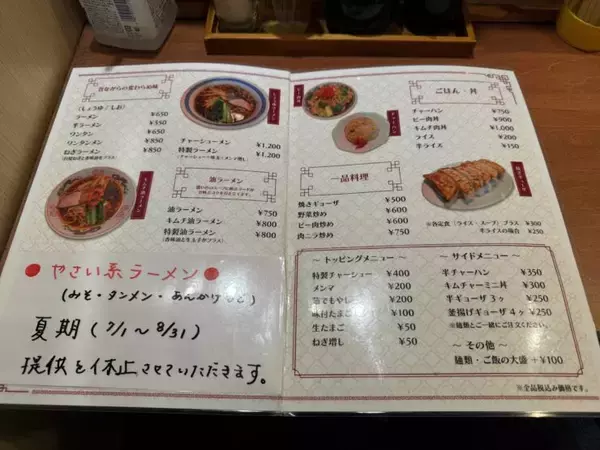 昔ながらの変わらぬ味
(しょうゆ / しお)
ラーメン ¥650
半ラーメン ¥550
ワンタン ¥650
ワンタンメン ¥850
ねぎラーメン ¥850
チャーシューメン ¥1,200
特製ラーメン ¥1,200
油ラーメン
油ラーメン ¥750
キムチ油ラーメン ¥800
特製油ラーメン ¥800
キムチ油ラーメン
●やさい系ラーメン●
(みそ・タンメン・あんかけなど)
夏期 (7/1~8/31)
提供を休止させていただきます。
チャーハン
ごはん・丼
チャーハン ¥750
ピー肉丼 ¥900
キムチ肉丼 ¥1,000
ライス ¥200
半ライス ¥150
一品料理
焼きギョーザ ¥500
野菜炒め ¥600
ピー肉炒め ¥600
肉ニラ炒め ¥650
※各定食(ライス・スープ)プラス ¥300
半ライスの場合 ¥250
~ トッピングメニュー ~
特製チャーシュー ¥400
メンマ ¥200
茹でもやし ¥200
味付たまご ¥100
生たまご ¥50
ねぎ増し ¥50
~ サイドメニュー ~
半チャーハン ¥350
キムチャーミニ丼 ¥350
半ギョーザ 3ヶ ¥250
釜揚げギョーザ 4ヶ ¥250
※麺類とご一緒にご注文ください。
~ その他 ~
麺類・ご飯の大盛 +¥100
※全品税込み価格です。